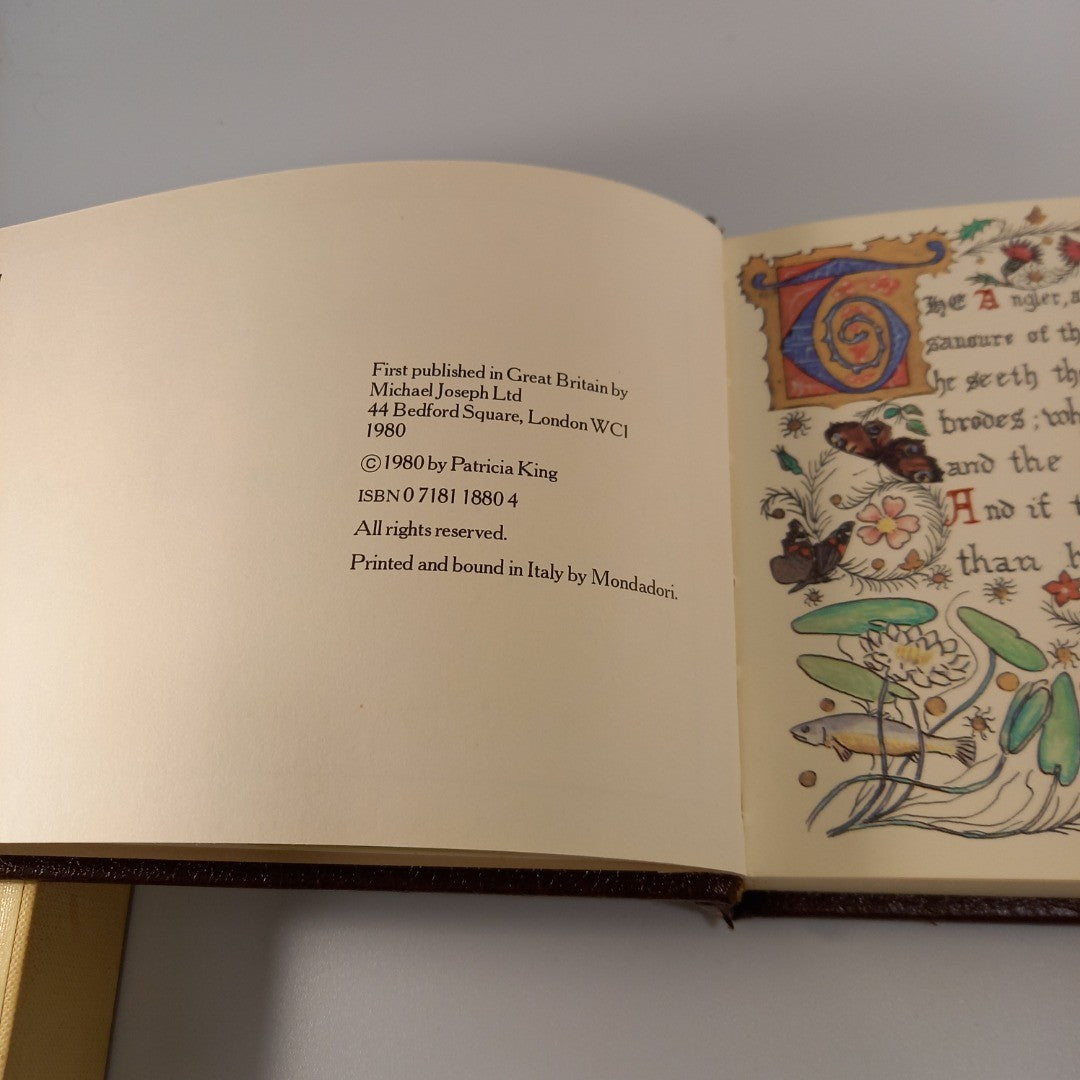 First published in Great Britain by
Michael Joseph Ltd
44 Bedford Square, London WC1
1980
©1980 by Patricia King
ISBN 0 7181 1880 4
All rights reserved.
Printed and bound in Italy by Mondadori.
The Angler, a
gausure of th
he seeth th
brodes; wh
and the
And if t
than h